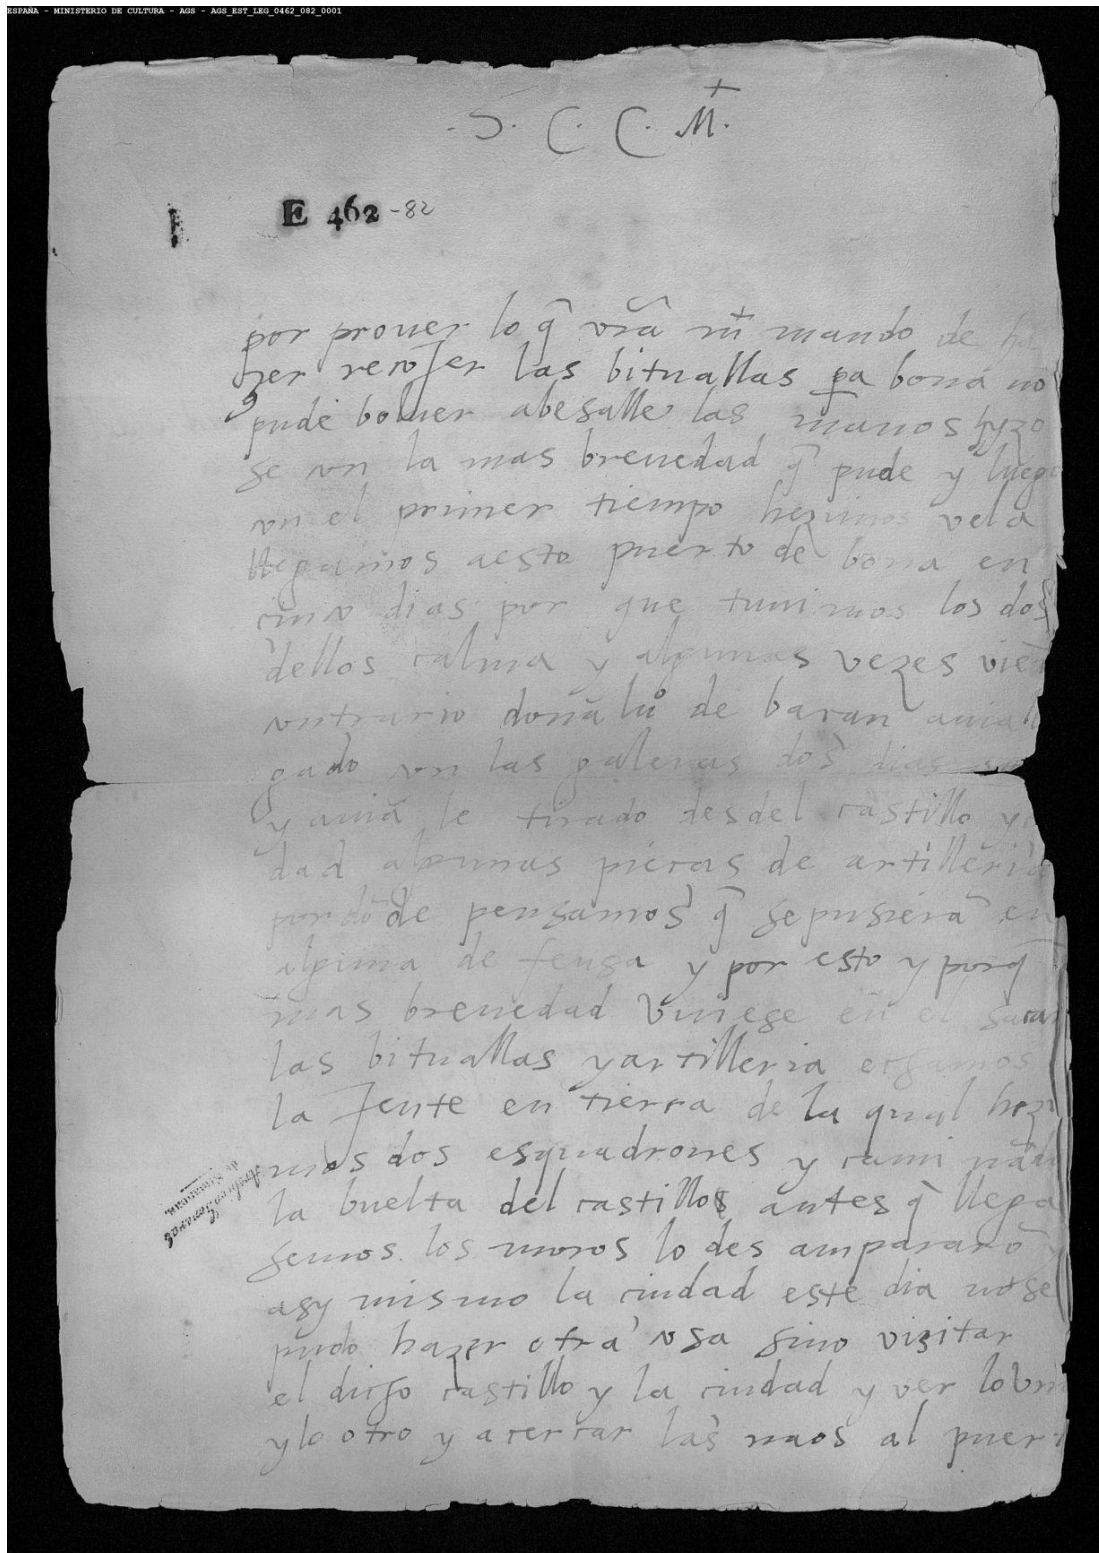 ESPAÑA - MINISTERIO DE CULTURA - AGS - AGS_EST_LEG_0462_082_0001
.S. C. C. M.
E 462 -82
por prouer lo q̃ vrã mt mando de
zer recoJer las bituallas pa bona no
pude boluer abesalle las manos hyzo
se con la mas breuedad q̃ pude y luego
con el primer tiempo hezimos vela
llegamos aeste puerto de bona en
cinco dias por que tuuimos los dos
dellos calma y algunas vezes vie
contrario don alu° de baçan auia
gado con las galeras dos dias
y auiã le tirado desdel castillo y
dad algunas pieças de artilleria
por dõde pensamos q̃ sepusierã en
alguna de fensa y por esto y porq̃
mas breuedad vuiese en el sacar
las bituallas yartilleria echamos
la Jente en tierra de la qual hezi
mos dos esquadrones y caminãdo
la buelta del castillo antes q̃ llega
semos los moros lo des ampararõ
asy mismo la ciudad este dia nose
pudo hazer otra cosa sino visitar
el dicho castillo y la ciudad y ver lo vno
ylo otro y acercar las naos al puer